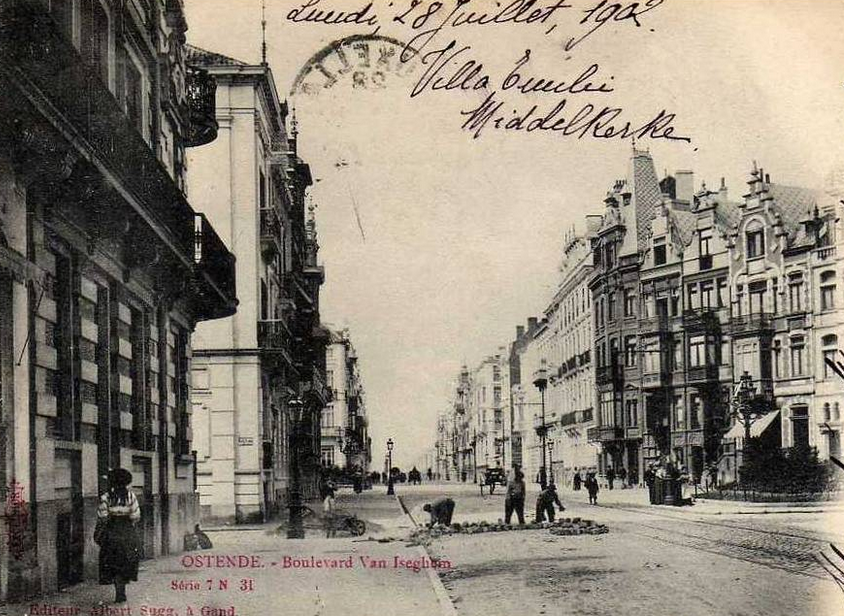 Lundi, 28 Juillet, 1902.
Villa Emilie
Middelkerke.
OSTENDE. - Boulevard Van Iseghem
Série 7 N 31
Editeur Albert Sugg, à Gand.